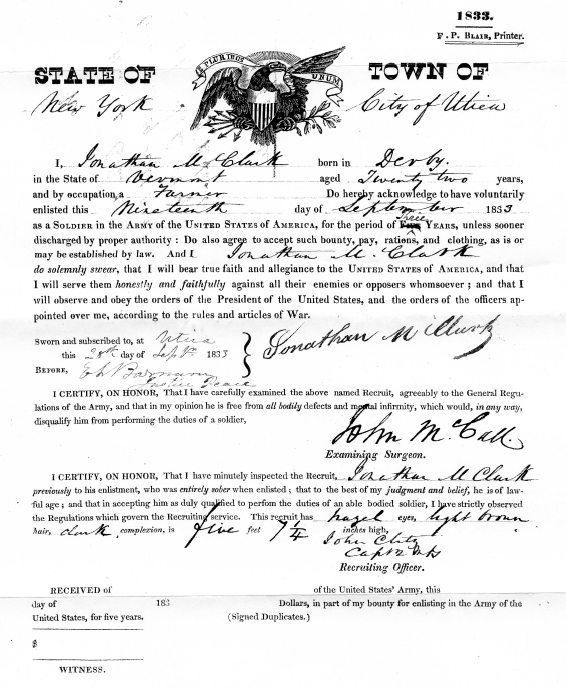 1833.
F. P. Blair, Printer.
E PLURIBUS UNUM
STATE OF TOWN OF
New York City of Utica
I, Jonathan M Clark born in Derby.
in the State of Vermont aged Twenty two years,
and by occupation, a Farmer Do hereby acknowledge to have voluntarily
enlisted this Nineteenth day of September 1833
as a Soldier in the Army of the United States of America, for the period of Five Three Years, unless sooner
discharged by proper authority : Do also agree to accept such bounty, pay, rations, and clothing, as is or
may be established by law. And I Jonathan M. Clark
do solemnly swear, that I will bear true faith and allegiance to the United States of America, and that
I will serve them honestly and faithfully against all their enemies or opposers whomsoever ; and that I
will observe and obey the orders of the President of the United States, and the orders of the officers ap-
pointed over me, according to the rules and articles of War.
Sworn and subscribed to, at Utica
this 28th day of Sept 1833
Jonathan M Clark
Before,
Justice Peace
I CERTIFY, ON HONOR, That I have carefully examined the above named Recruit, agreeably to the General Regu-
lations of the Army, and that in my opinion he is free from all bodily defects and mental infirmity, which would, in any way,
disqualify him from performing the duties of a soldier,
John McCall.
Examining Surgeon.
I CERTIFY, ON HONOR, That I have minutely inspected the Recruit, Jonathan M Clark
previously to his enlistment, who was entirely sober when enlisted ; that to the best of my judgment and belief, he is of law-
ful age ; and that in accepting him as duly qualified to perfom the duties of an able bodied soldier, I have strictly observed
the Regulations which govern the Recruiting service. This recruit has hazel eyes, light brown
hair, dark complexion, is five feet 7 1/4 inches high,
John Clitz
Capt
Recruiting Officer.
RECEIVED of of the United States' Army, this
day of 183 Dollars, in part of my bounty for enlisting in the Army of the
United States, for five years. (Signed Duplicates.)
$
WITNESS.